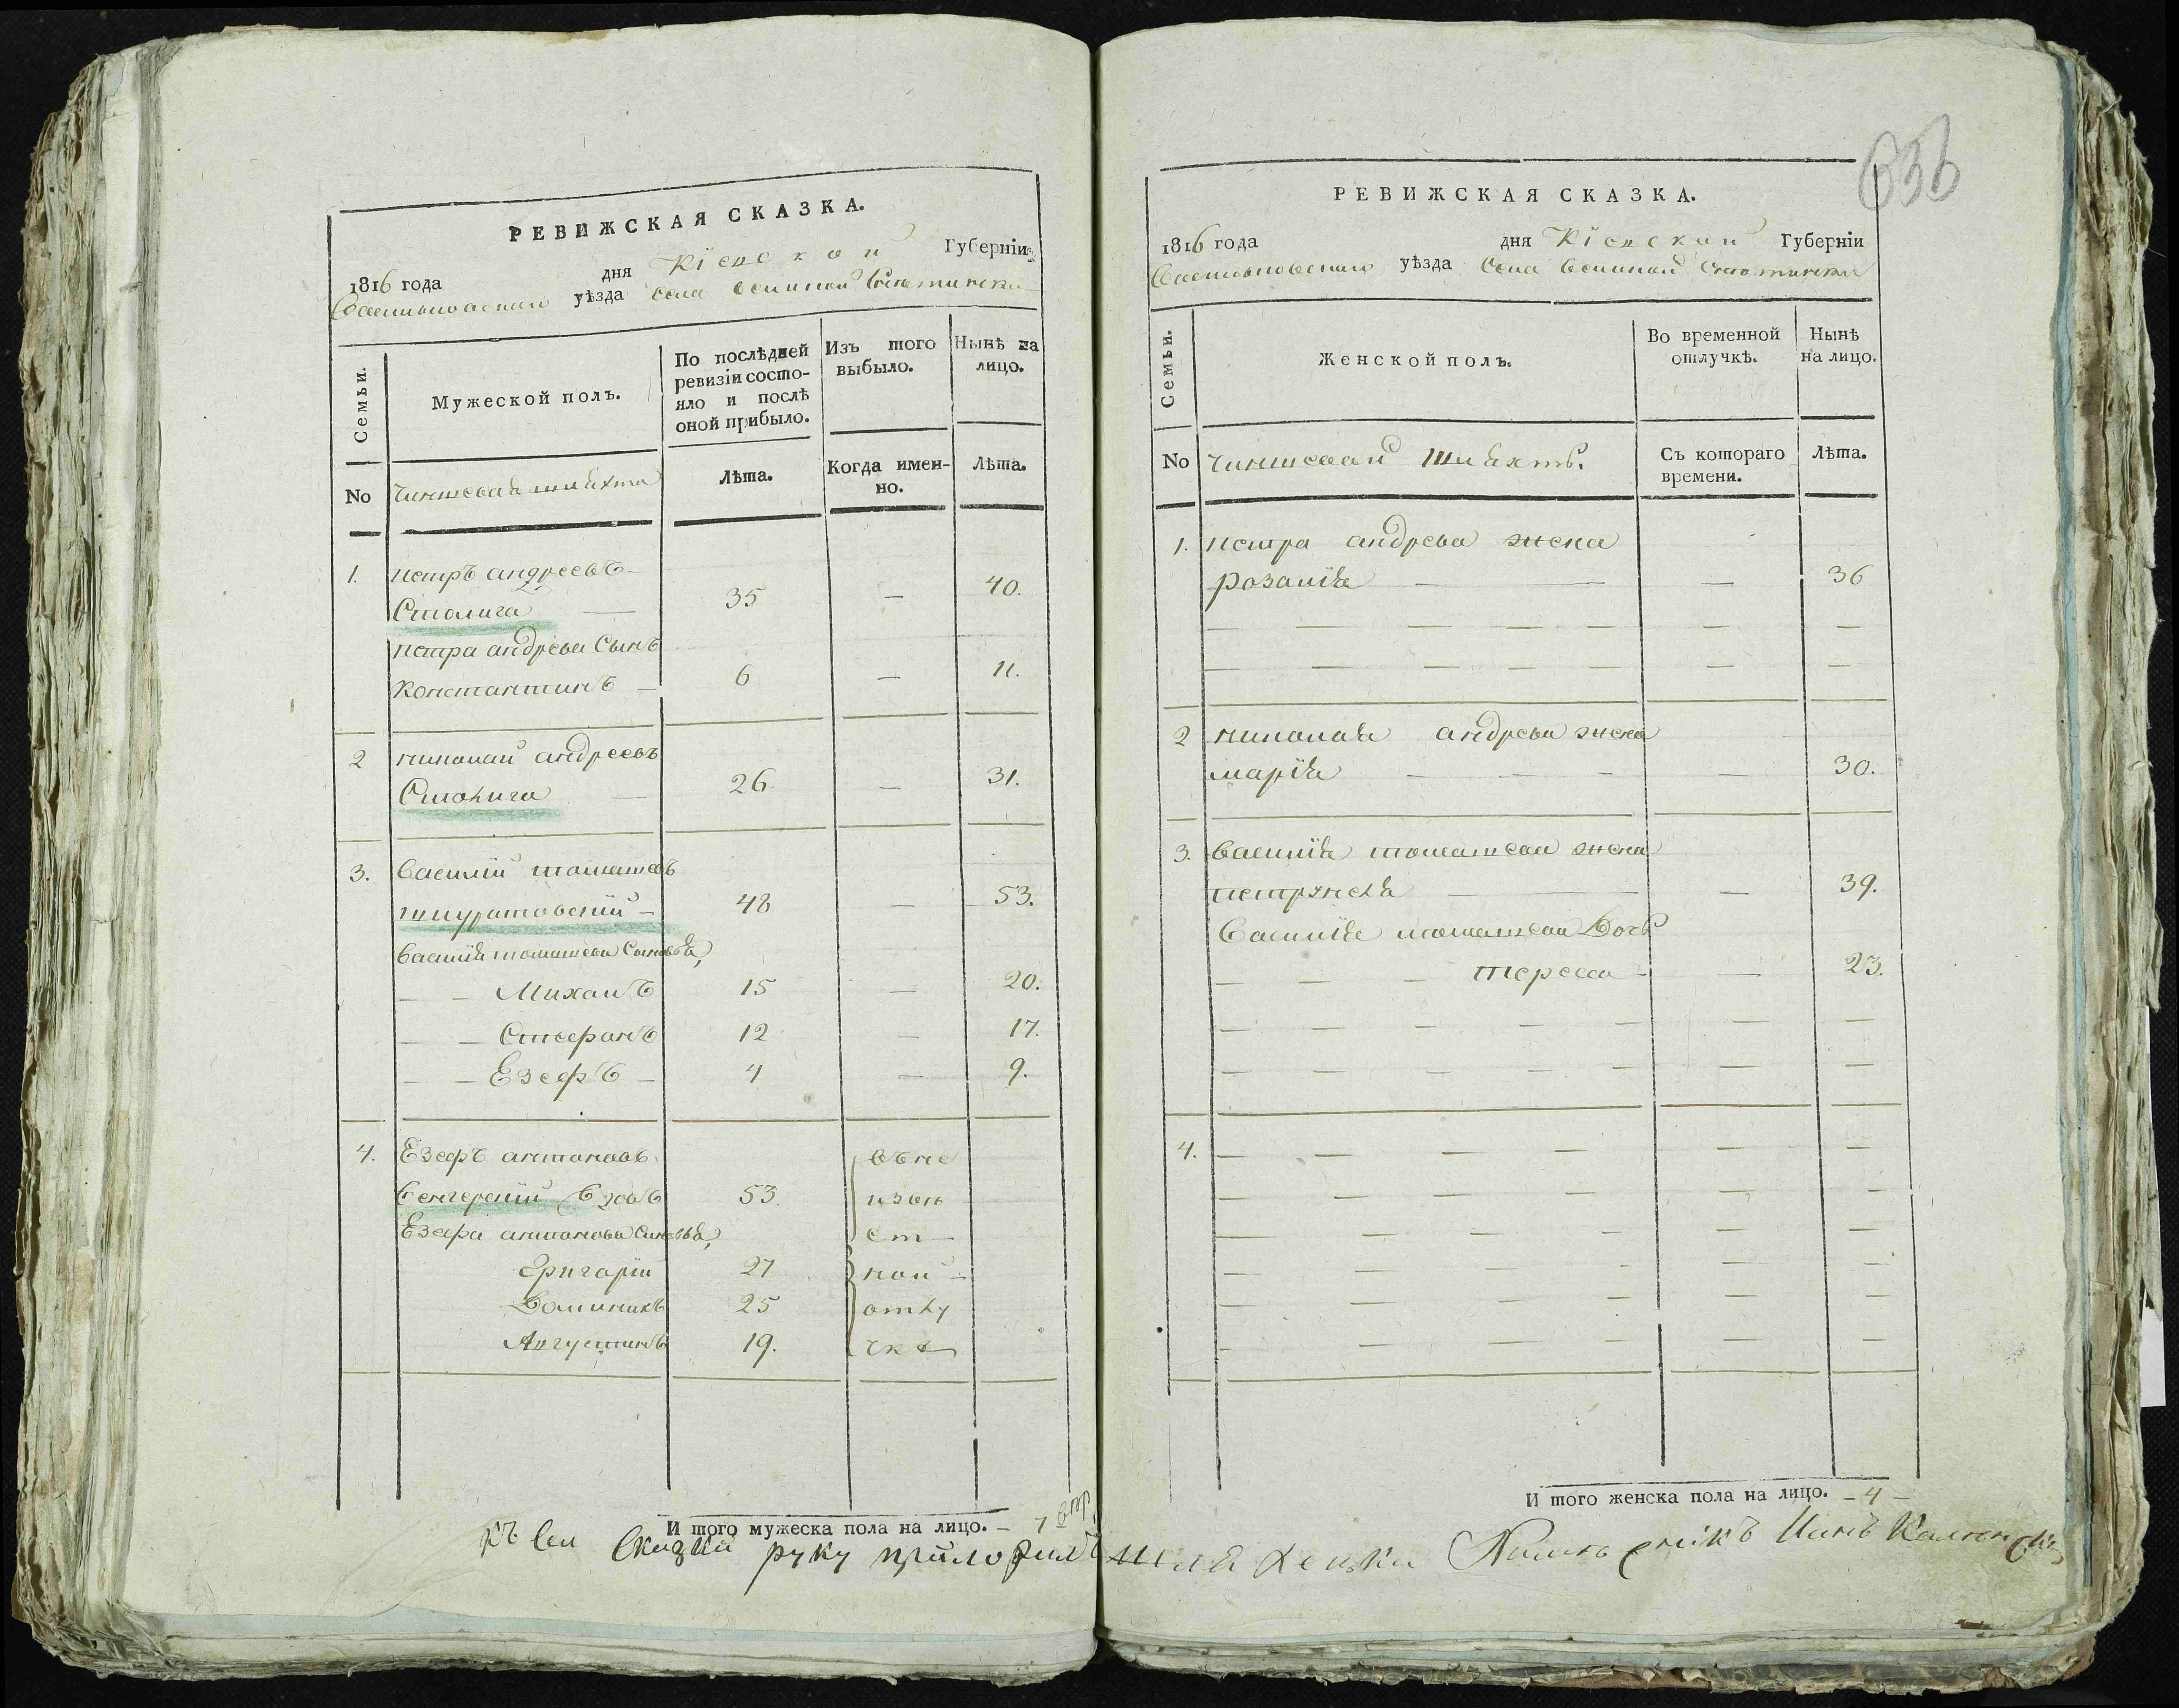 РЕВИЖСКАЯ СКАЗКА.
1816 года дня Кіевской Губерніи
Васильковскаго уѣзда Села великой Снѣтинки
Семьи.
Мужеской полъ.
По послѣдней ревизіи состояло и послѣ оной прибыло.
Изъ того выбыло.
Нынѣ на лицо.
No
Чиншевая шляхта
Лѣта.
Когда именно.
Лѣта.
1. Петръ андреевъ
Столица — 35 — 40.
Петра андреева Сынъ
Константинъ — 6 — 11.
2 николай андреевъ
Столица — 26 — 31.
3. Василій томашевъ
шкуратовскій — 48 — 53.
Василія томашева Сыновья,
— — Михаилъ 15 — 20.
— — Стефанъ 12 — 17.
— — Езефъ — 4 — 9.
4. Езефъ антоновъ
Венгерскій 53.
Езефа антонова Сыновья,
Григорій 27
Доминикъ 25
Августинъ 19.
въ не
извѣ
ст
ной
отлу
чкѣ
И того мужеска пола на лицо. — 7
РЕВИЖСКАЯ СКАЗКА.
636
1816 года дня Кіевской Губерніи
Васильковскаго уѣзда Села великой Снѣтинки
Семьи.
Женской полъ.
Во временной отлучкѣ.
Нынѣ на лицо.
No
Чиншевой шляхты.
Съ котораго времени.
Лѣта.
1. Петра андреева жена
Розалія — — 36
2 николая андреева жена
Марія — — 30.
3. Василія томашева жена
— 39.
Василія томашева Дочь
Тереса — — 23.
4.
И того женска пола на лицо. — 4 —
Къ сей Скаски руку приложилъ